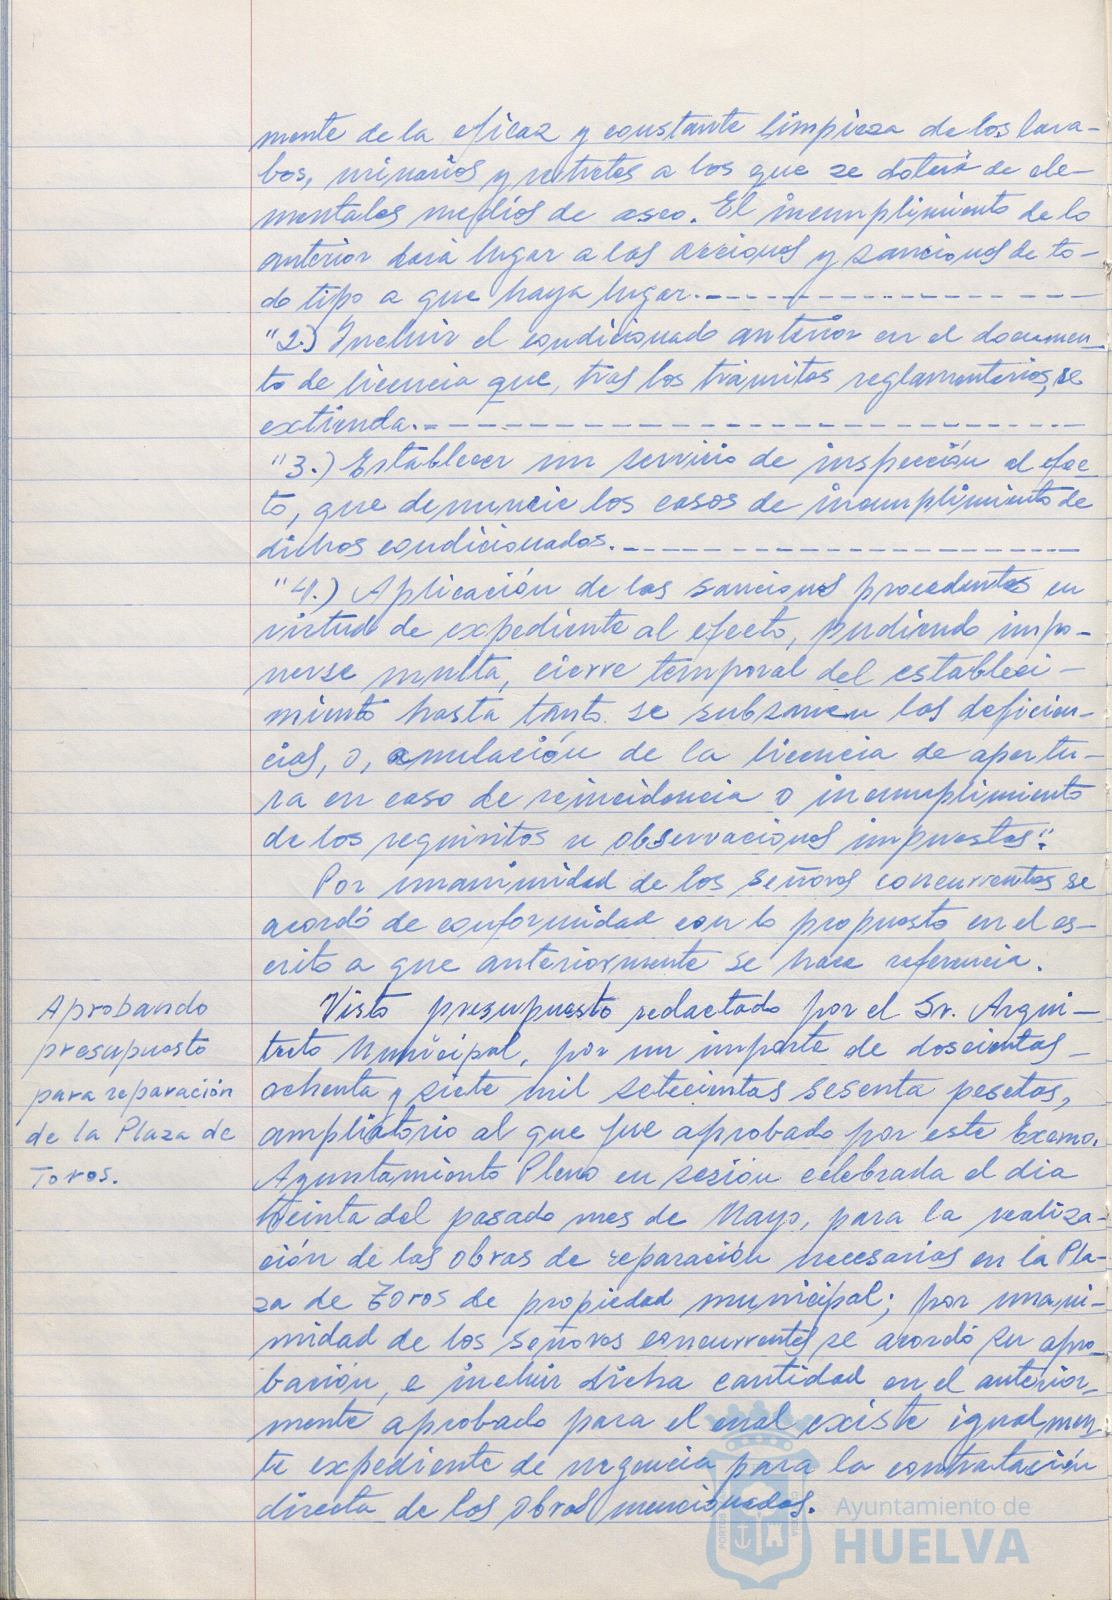 mente de la eficaz y constante limpieza de los lava-
bos, urinarios y retretes a los que se dotará de ele-
mentales medios de aseo. El incumplimiento de lo
anterior dará lugar a las acciones y sanciones de to-
do tipo a que haya lugar.-----------
"2.) Incluir el condicionado anterior en el documen-
to de licencia que, tras los trámites reglamentarios, se
extienda.------------------
"3.) Establecer un servicio de inspección al efec-
to, que denuncie los casos de incumplimiento de
dichos condicionados.----------------
"4.) Aplicación de las sanciones procedentes en
virtud de expediente al efecto, pudiendo impo-
nerse multa, cierre temporal del estableci-
miento hasta tanto se subsanen las deficien-
cias, o, anulación de la licencia de apertu-
ra en caso de reincidencia o incumplimiento
de los requisitos u observaciones impuestas".
Por unanimidad de los señores concurrentes se
acordó de conformidad con lo propuesto en el es-
crito a que anteriormente se hace referencia.
Aprobando
presupuesto
para reparación
de la Plaza de
Toros.
Visto presupuesto redactado por el Sr. Arqui-
tecto Municipal, por un importe de doscientas
ochenta y siete mil setecientas sesenta pesetas,
ampliatorio al que fue aprobado por este Excmo.
Ayuntamiento Pleno en sesión celebrada el dia
treinta del pasado mes de Mayo, para la realiza-
ción de las obras de reparación necesarias en la Pla-
za de Toros de propiedad municipal; por unani-
midad de los señores concurrentes se acordó su apro-
bación, e incluir dicha cantidad en el anterior-
mente aprobado para el cual existe igualmen-
te expediente de urgencia para la contratación
directa de las obras mencionadas.
Ayuntamiento de
HUELVA